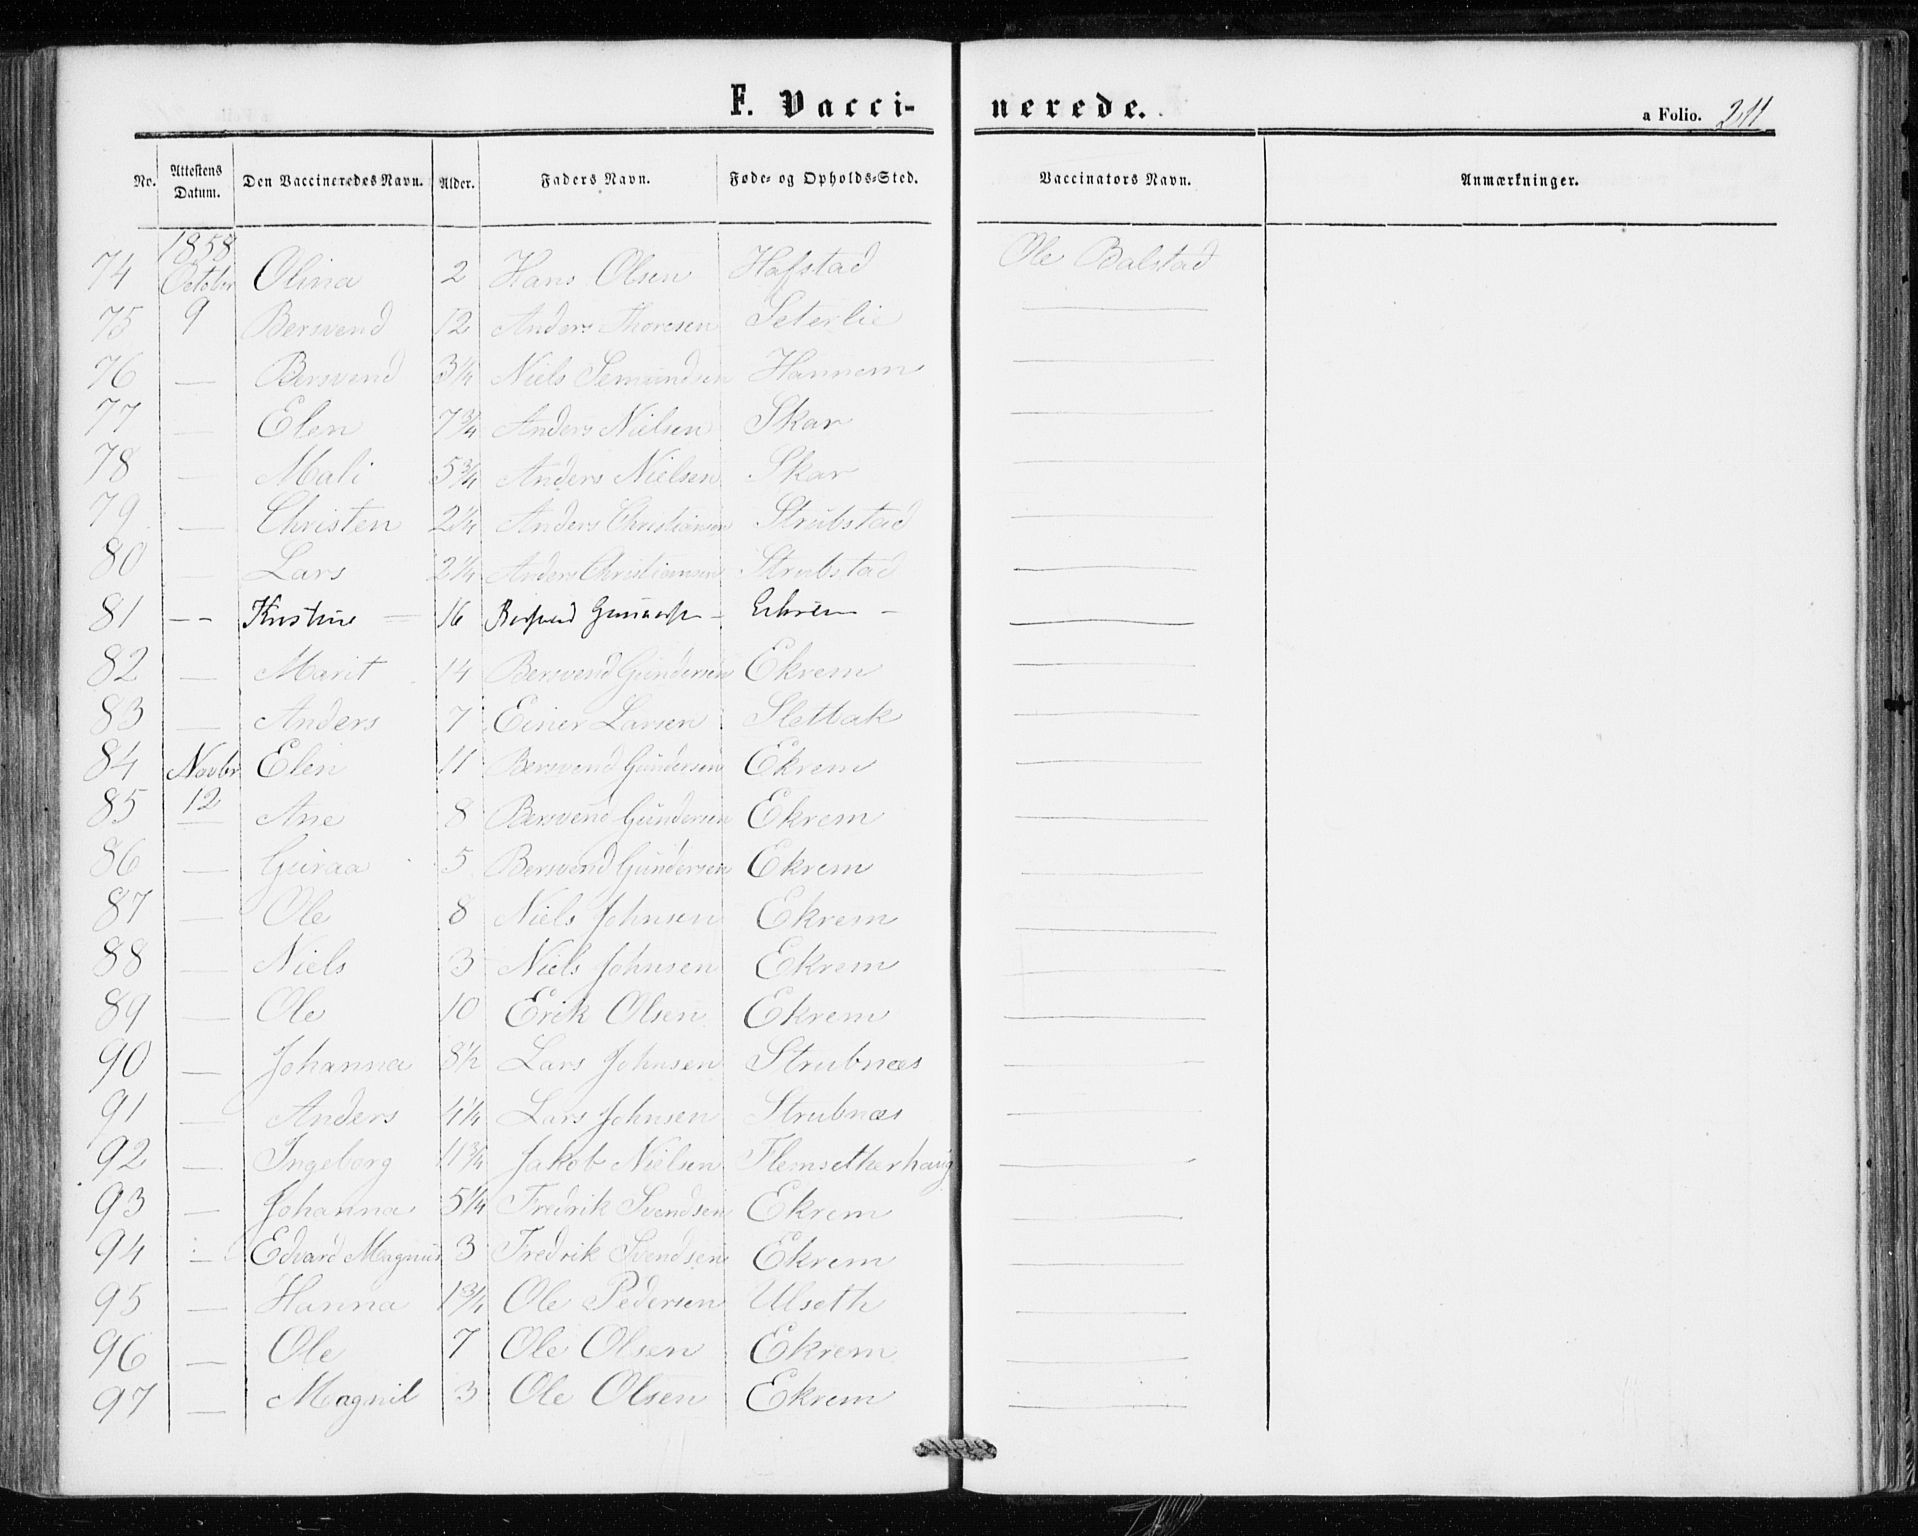 F. Vaccinerede. a Folio. 211
No. Attestens Datum. Den Vaccineredes Navn. Alder. Faders Navn. Føde- og Opholds-Sted. Vaccinators Navn. Anmærkninger.
1858
74 Octobr Olina 2 Hans Olsen Hafstad Ole Balstad
75 9 Bersvend 12 Anders Thoresen Seterlie
76 — Bersvend 3 1/4 Niels Semundsen Hannem
77 — Elen 7 3/4 Anders Nielsen Skar
78 — Mali 5 3/4 Anders Nielsen Skar
79 — Christen 2 1/4 Anders Christiansen Strubstad
80 — Lars 2 1/4 Anders Christiansen Strubstad
81 -- Kristine 16
82 — Marit 14 Bersvend Gundersen Ekrem
83 — Anders 7 Einer Larsen Sletbak
84 Novbr Elen 11 Bersvend Gundersen Ekrem
85 12 Ane 8 Bersvend Gundersen Ekrem
86 — Guraa 5 Bersvend Gundersen Ekrem
87 — Ole 8 Niels Johnsen Ekrem
88 — Niels 3 Niels Johnsen Ekrem
89 — Ole 10 Erik Olsen Ekrem
90 — Johanna 8 1/2 Lars Johnsen Strubnæs
91 — Anders 4 1/4 Lars Johnsen Strubnæs
92 — Ingeborg 11 3/4 Jakob Nielsen Flemsetherhaug
93 — Johanna 5 1/4 Fredrik Svendsen Ekrem
94 — Edvard Magnus 3 Fredrik Svendsen Ekrem
95 — Hanna 1 3/4 Ole Pedersen Ulseth
96 — Ole 7 Ole Olsen Ekrem
97 — Magnil 3 Ole Olsen Ekrem